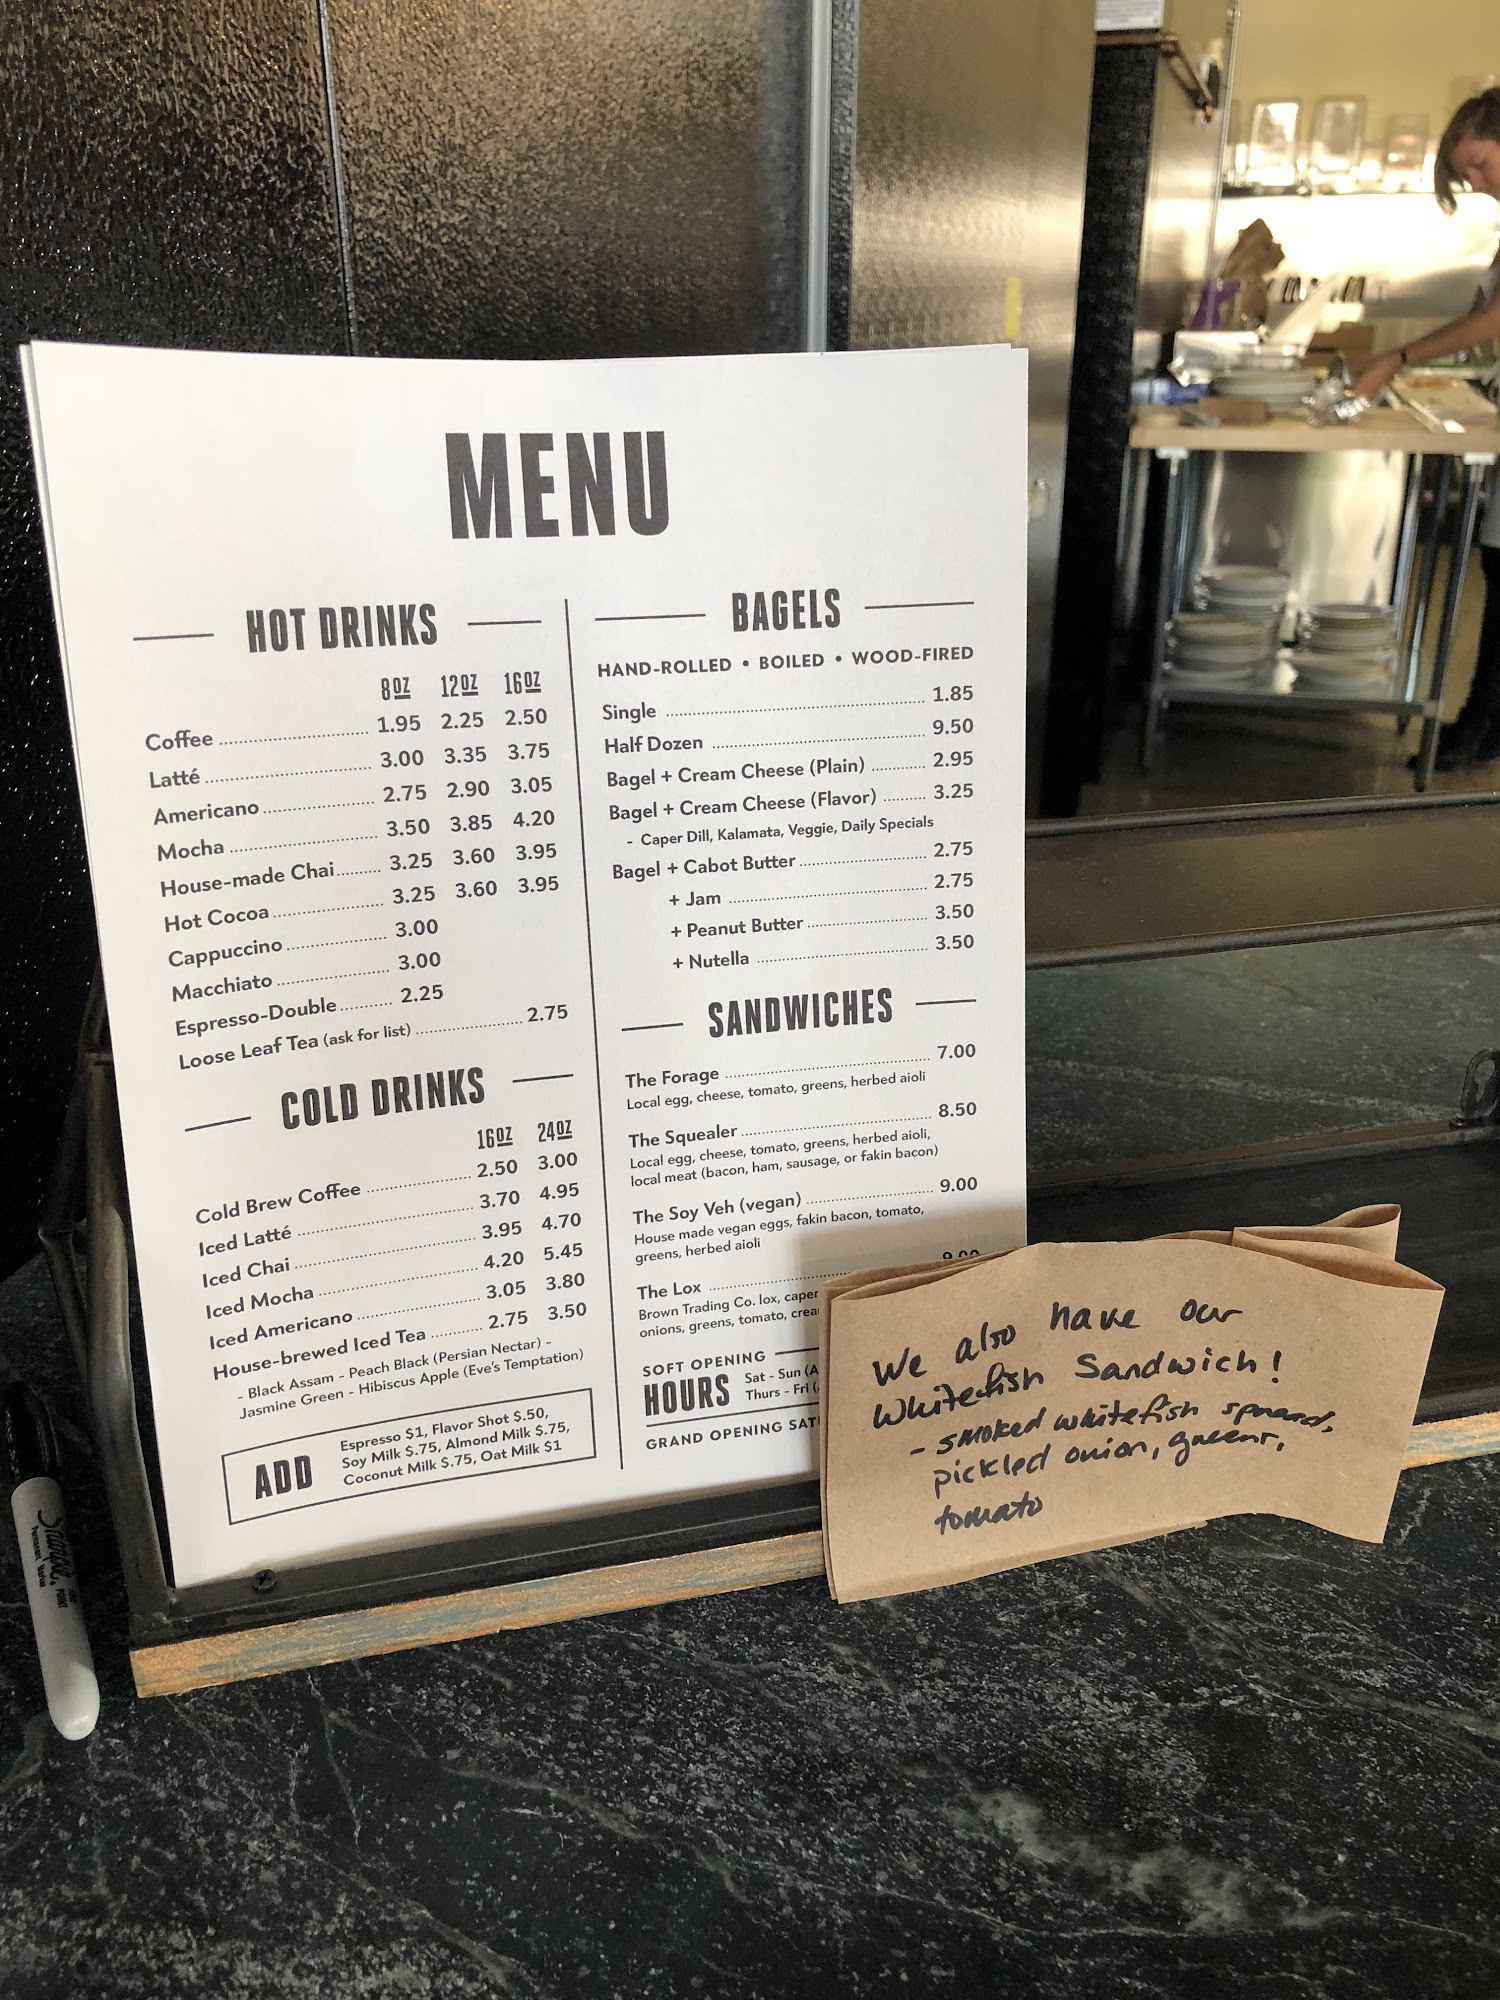 MENU
HOT DRINKS
8OZ 12OZ 16OZ
Coffee 1.95 2.25 2.50
Latté 3.00 3.35 3.75
Americano 2.75 2.90 3.05
Mocha 3.50 3.85 4.20
House-made Chai 3.25 3.60 3.95
Hot Cocoa 3.25 3.60 3.95
Cappuccino 3.00
Macchiato 3.00
Espresso-Double 2.25
Loose Leaf Tea (ask for list) 2.75
COLD DRINKS
16OZ 24OZ
Cold Brew Coffee 2.50 3.00
Iced Latté 3.70 4.95
Iced Chai 3.95 4.70
Iced Mocha 4.20 5.45
Iced Americano 3.05 3.80
House-brewed Iced Tea 2.75 3.50
- Black Assam - Peach Black (Persian Nectar) -
Jasmine Green - Hibiscus Apple (Eve's Temptation)
ADD
Espresso $1, Flavor Shot $.50,
Soy Milk $.75, Almond Milk $.75,
Coconut Milk $.75, Oat Milk $1
BAGELS
HAND-ROLLED • BOILED • WOOD-FIRED
Single 1.85
Half Dozen 9.50
Bagel + Cream Cheese (Plain) 2.95
Bagel + Cream Cheese (Flavor) 3.25
- Caper Dill, Kalamata, Veggie, Daily Specials
Bagel + Cabot Butter 2.75
+ Jam 2.75
+ Peanut Butter 3.50
+ Nutella 3.50
SANDWICHES
The Forage 7.00
Local egg, cheese, tomato, greens, herbed aioli
The Squealer 8.50
Local egg, cheese, tomato, greens, herbed aioli,
local meat (bacon, ham, sausage, or fakin bacon)
The Soy Veh (vegan) 9.00
House made vegan eggs, fakin bacon, tomato,
greens, herbed aioli
The Lox 9.00
Brown Trading Co. lox, caper
onions, greens, tomato, crea
SOFT OPENING
HOURS
Sat - Sun (A
Thurs - Fri (
GRAND OPENING SAT
We also have our
Whitefish Sandwich!
- smoked whitefish spread,
pickled onion, greens,
tomato
Sharpie